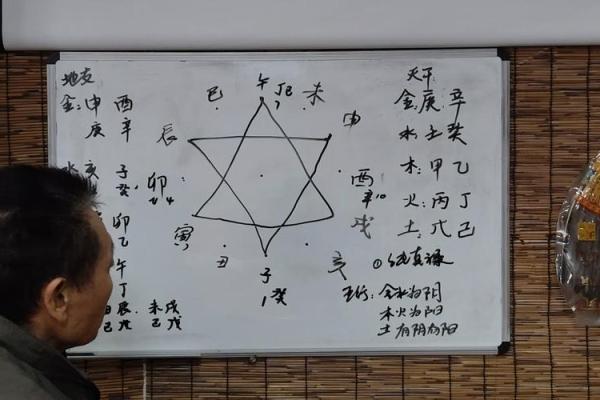 地支
金: 申 酉
庚 辛
亥 子
癸
卯
乙
午
丁
辰 未 戌
己 戊 己 戊
巳 午 丁 未
7
辰 申
卯 酉
4 辛 10
寅 戌
丑 亥
子
1 癸
天干
金: 庚 辛
水: 士 癸
木: 甲 乙
火: 丙 丁
土: 戊 己
五行: 金水为阴
木火为阳
土有阴有阳